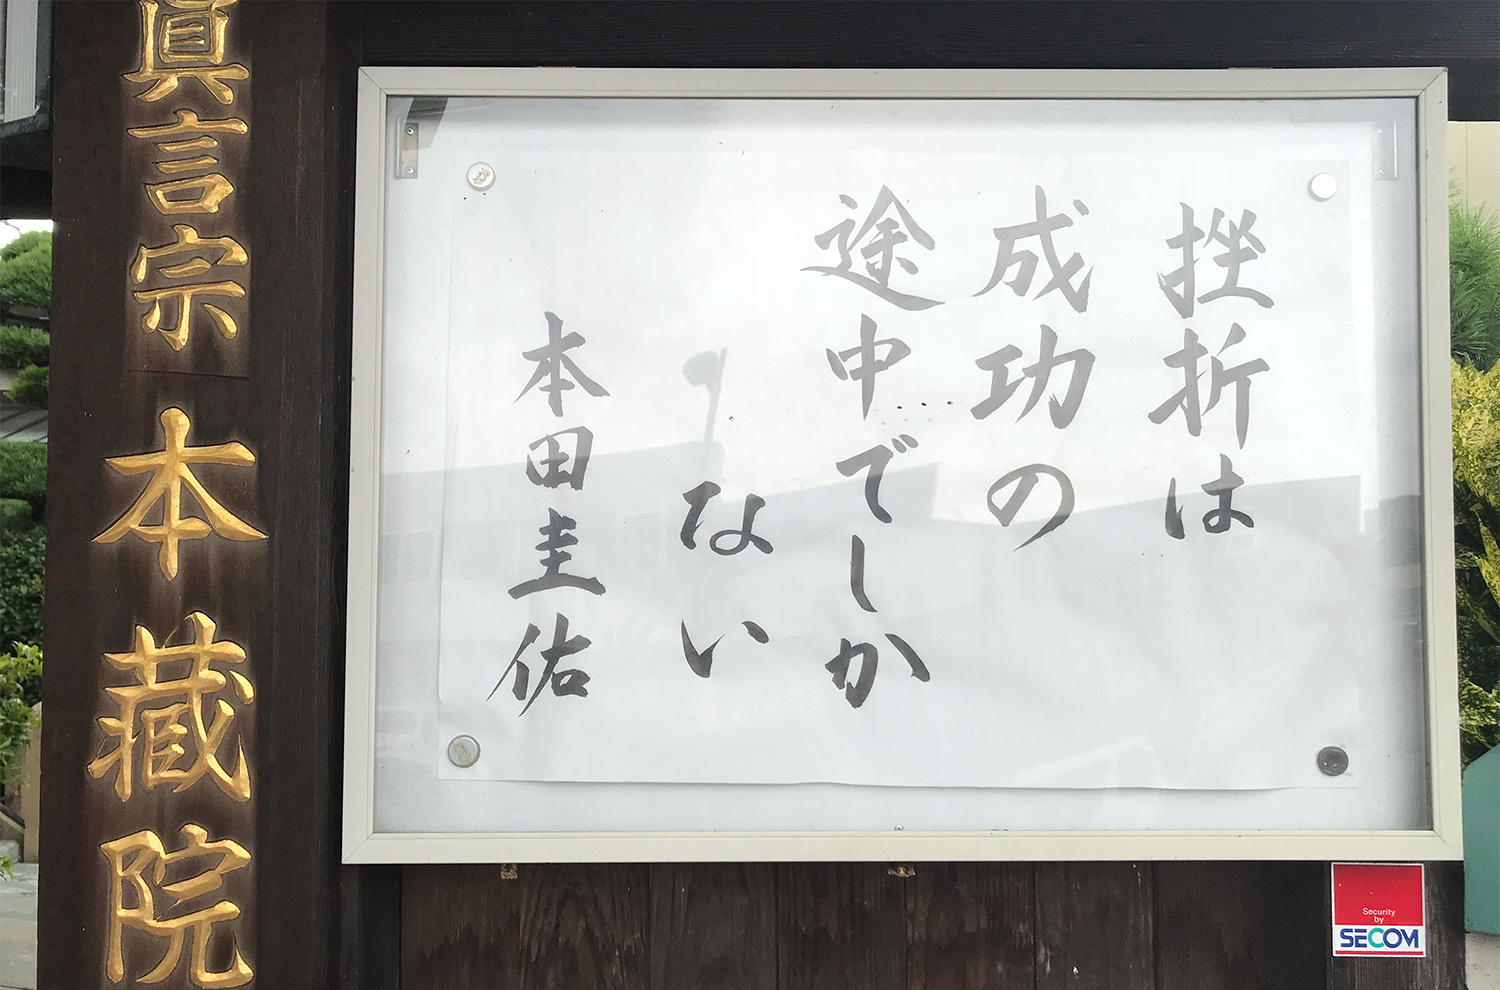 眞言宗 本蔵院
挫折は
成功の
途中でしか
ない
本田圭佑
Security
by
SECOM